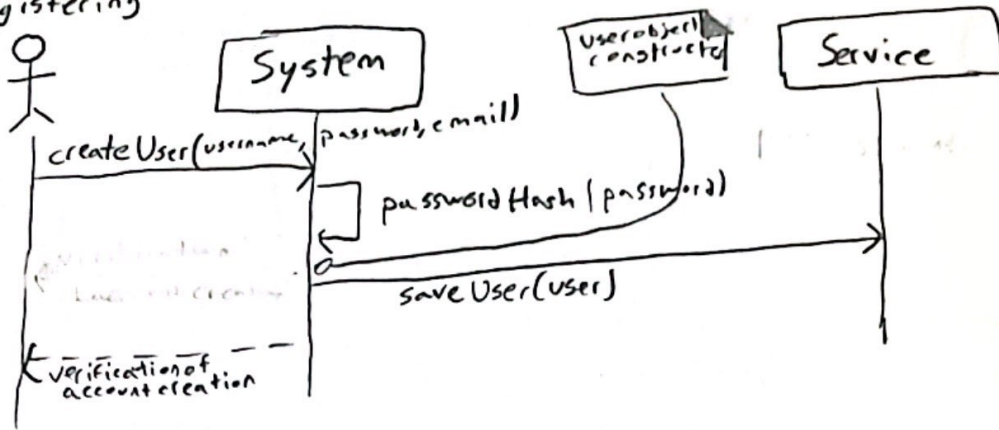 gistering
System
userobject
constructo
Service
createUser(username, password, email)
passwordHash(password)
saveUser(user)
verification of
account creation